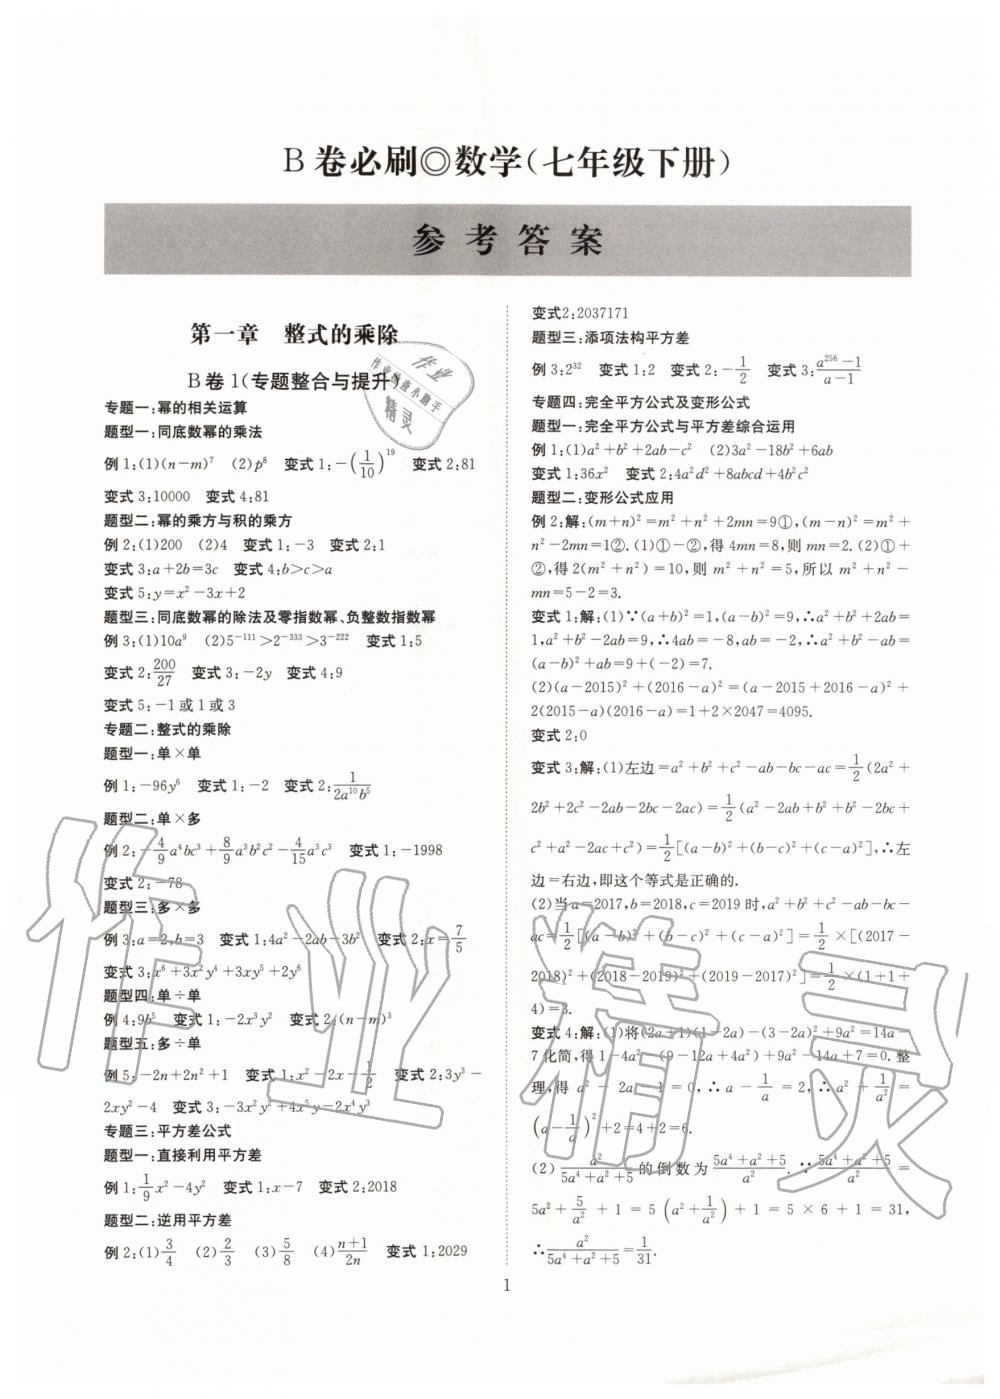 B卷必刷◎数学(七年级下册)
参考答案
第一章 整式的乘除
B卷1(专题整合与提升)
专题一:幂的相关运算
题型一:同底数幂的乘法
例1:(1)(n-m)⁷ (2)p⁸ 变式1:-(1/10)¹⁹ 变式2:81
变式3:10000 变式4:81
题型二:幂的乘方与积的乘方
例2:(1)200 (2)4 变式1:-3 变式2:1
变式3:a+2b=3c 变式4:b>c>a
变式5:y=x²-3x+2
题型三:同底数幂的除法及零指数幂、负整数指数幂
例3:(1)10a⁹ (2)5⁻¹¹¹>2⁻³³³>3⁻²²² 变式1:5
变式2:200/27 变式3:-2y 变式4:9
变式5:-1或1或3
专题二:整式的乘除
题型一:单×单
例1:-96y⁶ 变式1:-2 变式2:1/(2a¹⁰b⁵)
题型二:单×多
例2:-4/9a⁴bc³+8/9a³b²c²-4/15a³c³ 变式1:-1998
变式2:-78
题型三:多×多
例3:a=2,b=3 变式1:4a²-2ab-3b² 变式2:x=7/5
变式3:x⁶+3x²y⁴+3xy⁵+2y⁶
题型四:单÷单
例4:9b⁵ 变式1:-2x³y² 变式2:(n-m)³
题型五:多÷单
例5:-2n+2n²+1 变式1:x²-2x-1/2 变式2:3y³-
2xy²-4 变式3:-3x²y²+4x⁵y-2x⁴y³
专题三:平方差公式
题型一:直接利用平方差
例1:1/9x²-4y² 变式1:x-7 变式2:2018
题型二:逆用平方差
例2:(1)3/4 (2)2/3 (3)5/8 (4)(n+1)/2n 变式1:2029
变式2:2037171
题型三:添项法构平方差
例3:2³² 变式1:2 变式2:-1/2 变式3:(a²⁵⁶-1)/(a-1)
专题四:完全平方公式及变形公式
题型一:完全平方公式与平方差综合运用
例1:(1)a²+b²+2ab-c² (2)3a²-18b²+6ab
变式1:36x² 变式2:4a²d²+8abcd+4b²c²
题型二:变形公式应用
例2:解:(m+n)²=m²+n²+2mn=9①,(m-n)²=m²+
n²-2mn=1②.(1)①-②,得4mn=8,则mn=2.(2)①+
②,得2(m²+n²)=10,则m²+n²=5,所以m²+n²-
mn=5-2=3.
变式1:解:(1)∵(a+b)²=1,(a-b)²=9,∴a²+b²+2ab=
1,a²+b²-2ab=9,∴4ab=-8,ab=-2,∴a²+b²-ab=
(a-b)²+ab=9+(-2)=7.
(2)(a-2015)²+(2016-a)²=(a-2015+2016-a)²+
2(2015-a)(2016-a)=1+2×2047=4095.
变式2:0
变式3:解:(1)左边=a²+b²+c²-ab-bc-ac=1/2(2a²+
2b²+2c²-2ab-2bc-2ac)=1/2(a²-2ab+b²+b²-2bc+
c²+a²-2ac+c²)=1/2[(a-b)²+(b-c)²+(c-a)²],∴左
边=右边,即这个等式是正确的.
(2)当a=2017,b=2018,c=2019时,a²+b²+c²-ab-bc-
ac=1/2[(a-b)²+(b-c)²+(c-a)²]=1/2×[(2017-
2018)²+(2018-2019)²+(2019-2017)²]=1/2×(1+1+
4)=3.
变式4:解:(1)将(2a+1)(1-2a)-(3-2a)²+9a²=14a-
7化简,得1-4a²-(9-12a+4a²)+9a²-14a+7=0.整
理,得a²-2a-1=0,∴a-1/a=2,∴a²+1/a²=
(a-1/a)²+2=4+2=6.
(2)a²/(5a⁴+a²+5)的倒数为(5a⁴+a²+5)/a².∵(5a⁴+a²+5)/a²=
5a²+5/a²+1=5(a²+1/a²)+1=5×6+1=31,
∴a²/(5a⁴+a²+5)=1/31.
1
作业
作业检查小助手
精灵
作业精灵